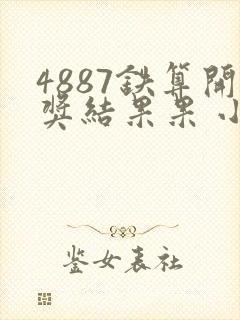 4887鉄算開
奖結果果小
鉴女表社